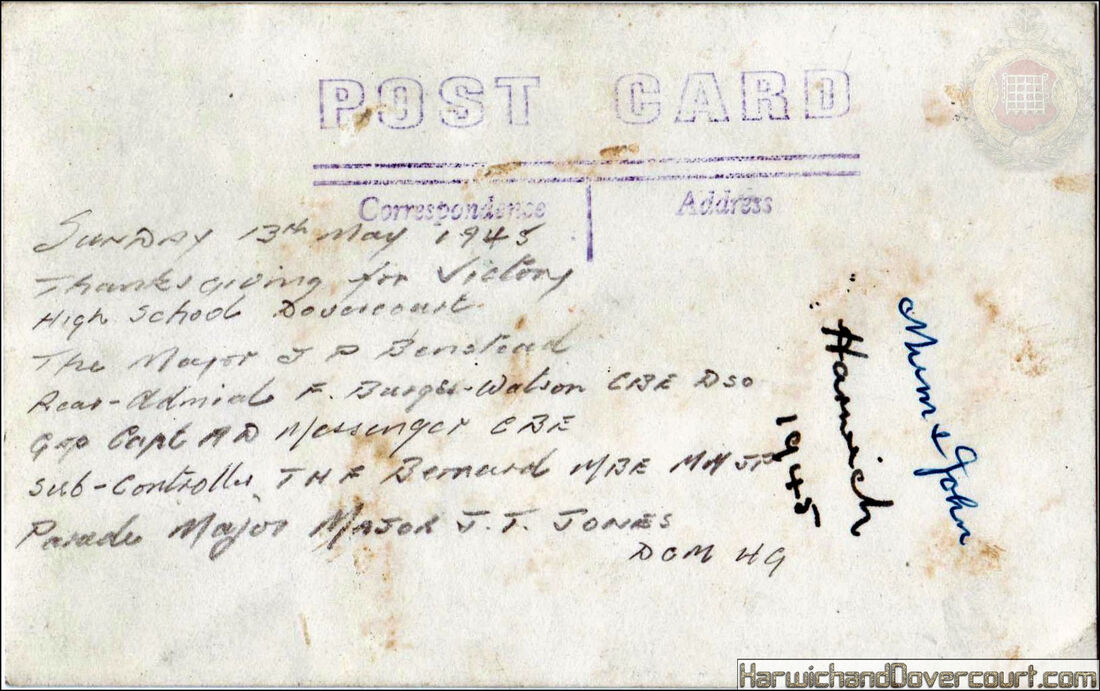 POST CARD
Correspondence
Address
SUNDAY 13th May 1945
Thanksgiving for Victory
High School Dovercourt
The Mayor J P Benstead
Rear-Admiral F. Burges-Watson CBE DSO
Grp Capt AD Messenger CBE
Sub-Controller THF Bernard MBE MM JP
Parade Major MAJOR J.T. JONES
DCM HG
Harwich
1945
Mum & John
HarwichandDovercourt.com